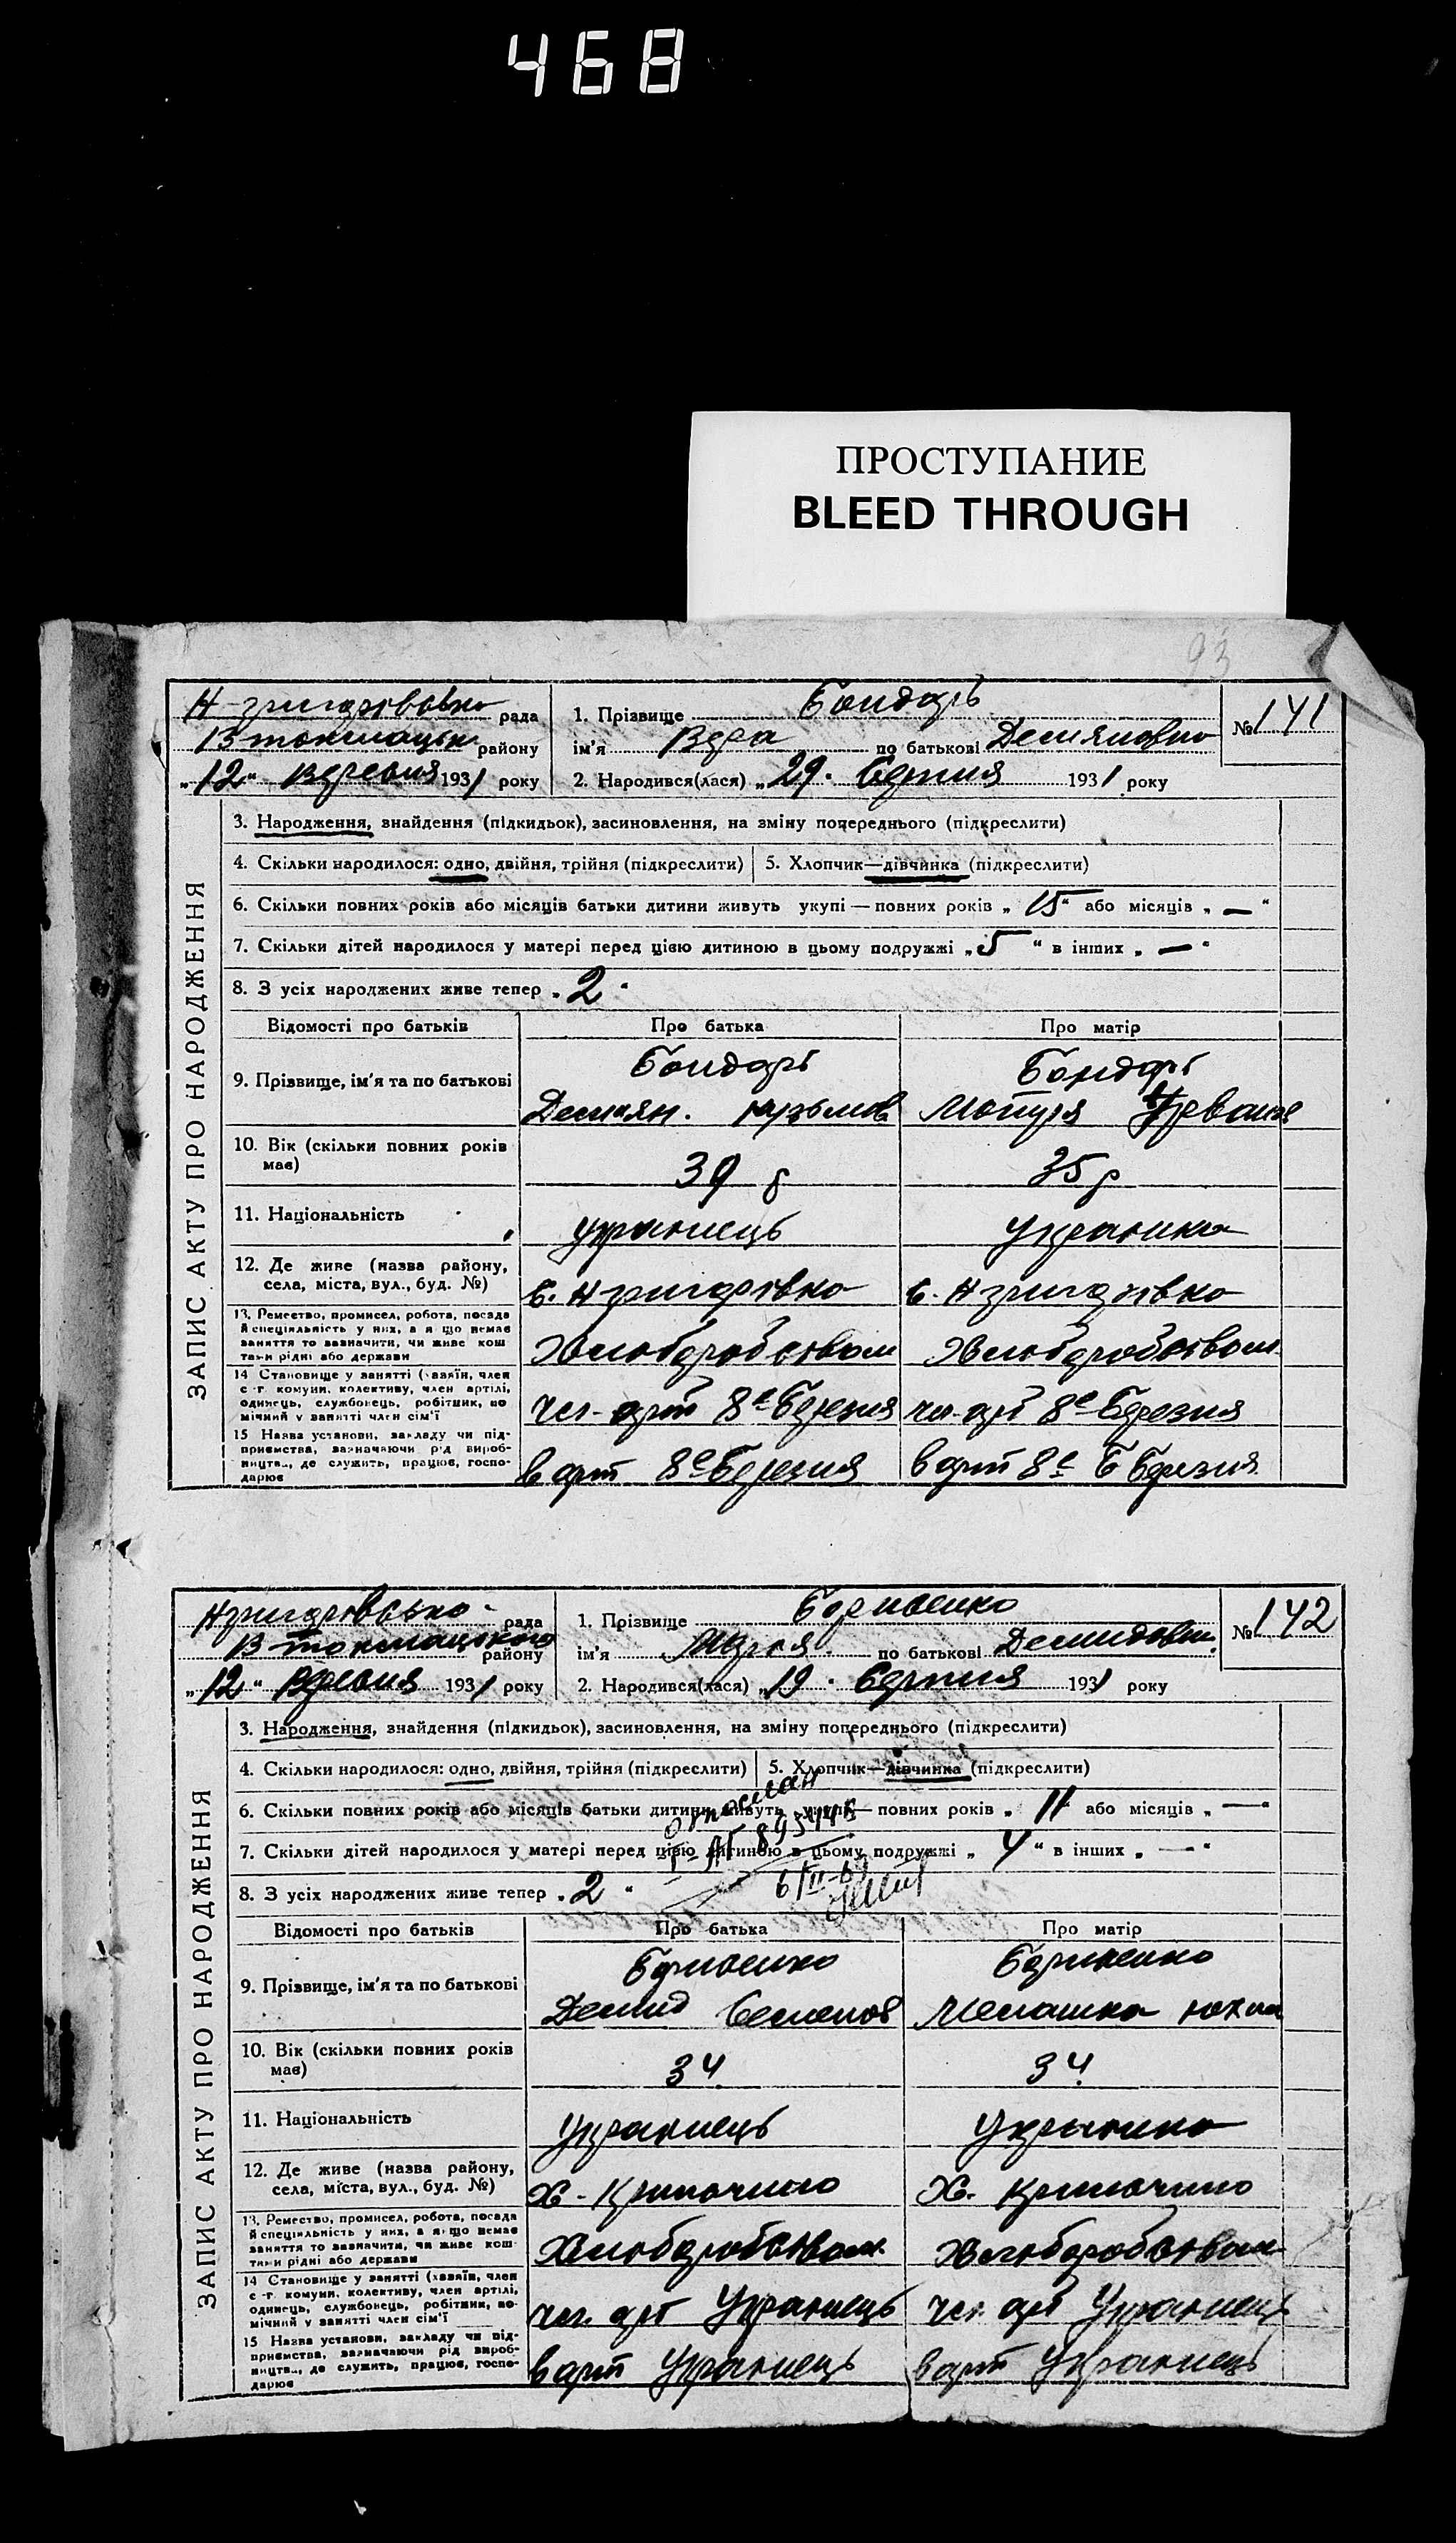 468
ПРОСТУПАНИЕ
BLEED THROUGH
93
Н-григорівсько рада
В токмацьк району
„12“ вересня 1931 року
1. Прізвище Бондарь
ім'я Вера по батькові Демяновно
2. Народився(лася) „29. Серпня 1931 року
№ 141
ЗАПИС АКТУ ПРО НАРОДЖЕННЯ
3. Народження, знайдення (підкидьок), засиновлення, на зміну попереднього (підкреслити)
4. Скільки народилося: одно, двійня, трійня (підкреслити)
5. Хлопчик—дівчинка (підкреслити)
6. Скільки повних років або місяців батьки дитини живуть укупі — повних років „ 15 “ або місяців „ — “
7. Скільки дітей народилося у матері перед цією дитиною в цьому подружжі „ 5 “ в інших „ — “
8. З усіх народжених живе тепер „ 2 “
Відомості про батьків Про батька Про матір
9. Прізвище, ім'я та по батькові
Бондарь Бондарь
Демян. Кузьмов Мотуря
10. Вік (скільки повних років має)
39 р 35 р
11. Національність
Украинець Украинка
12. Де живе (назва району, села, міста, вул., буд. №)
с. Н григорівко с. Н григорівко
13. Ремество, промисел, робота, посада й спеціяльність у них, а якщо немає заняття то зазначити, чи живе коштами рідні або держави
Хлеборобством Хлеборобством
14 Становище у занятті (хазяїн, член с.-г. комуни, колективу, член артілі, одинець, службовець, робітник, помічний у занятті член сім'ї
чл. арт 8е Березня чл. арт 8е Березня
15 Назва установи, закладу чи підприємства, зазначаючи рід виробництва, де служить, працює, господарює
в арт 8е Березня в арт 8е Б Березня
Нгригорівсько рада
В-токмацького району
„12“ Вересня 1931 року
1. Прізвище Борисенко
ім'я Марія по батькові Демидовн.
2. Народився(лася) „19. Серпня 1931 року
№ 142
ЗАПИС АКТУ ПРО НАРОДЖЕННЯ
3. Народження, знайдення (підкидьок), засиновлення, на зміну попереднього (підкреслити)
4. Скільки народилося: одно, двійня, трійня (підкреслити)
5. Хлопчик—дівчинка (підкреслити)
6. Скільки повних років або місяців батьки дитини живуть укупі — повних років „ 11 “ або місяців „ — “
7. Скільки дітей народилося у матері перед цією дитиною в цьому подружжі „ 4 “ в інших „ — “
8. З усіх народжених живе тепер „ 2 “
Відомості про батьків Про батька Про матір
9. Прізвище, ім'я та по батькові
Борисенко Борисенко
Демид Семенов Мелашка Юхим
10. Вік (скільки повних років має)
34 34
11. Національність
Украинець Украинка
12. Де живе (назва району, села, міста, вул., буд. №)
Х- Х.
13. Ремество, промисел, робота, посада й спеціяльність у них, а якщо немає заняття то зазначити, чи живе коштами рідні або держави
Хлеборобством Хлеборобством
14 Становище у занятті (хазяїн, член с.-г. комуни, колективу, член артілі, одинець, службовець, робітник, помічний у занятті член сім'ї
чл. арт Украинець чл. арт Украинець
15 Назва установи, закладу чи підприємства, зазначаючи рід виробництва, де служить, працює, господарює
в арт Украинець в арт Украинець